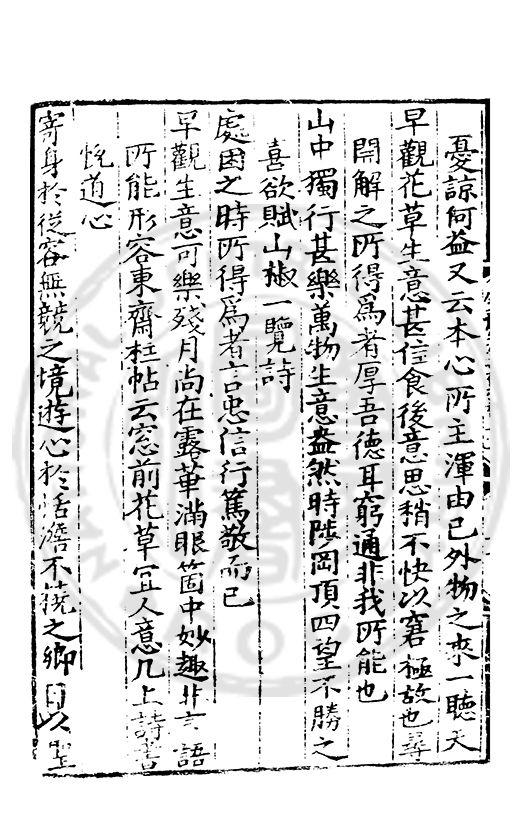 憂諒何益又云本心所主渾由己外物之來一聽天
早觀花草生意甚佳食後意思稍不快以窘極故也尋
開解之所得為者厚吾德耳窮通非我所能也
山中獨行甚樂萬物生意盎然時陟岡頂四望不勝之
喜欲賦山椒一覽詩
處困之時所得為者言忠信行篤敬而已
早觀生意可樂殘月尚在露華滿眼箇中妙趣非言語
所能形容東齋柱帖云窓前花草宜人意几上詩書
悅道心
寄身於從容無競之境遊心於恬澹不撓之鄉日以聖